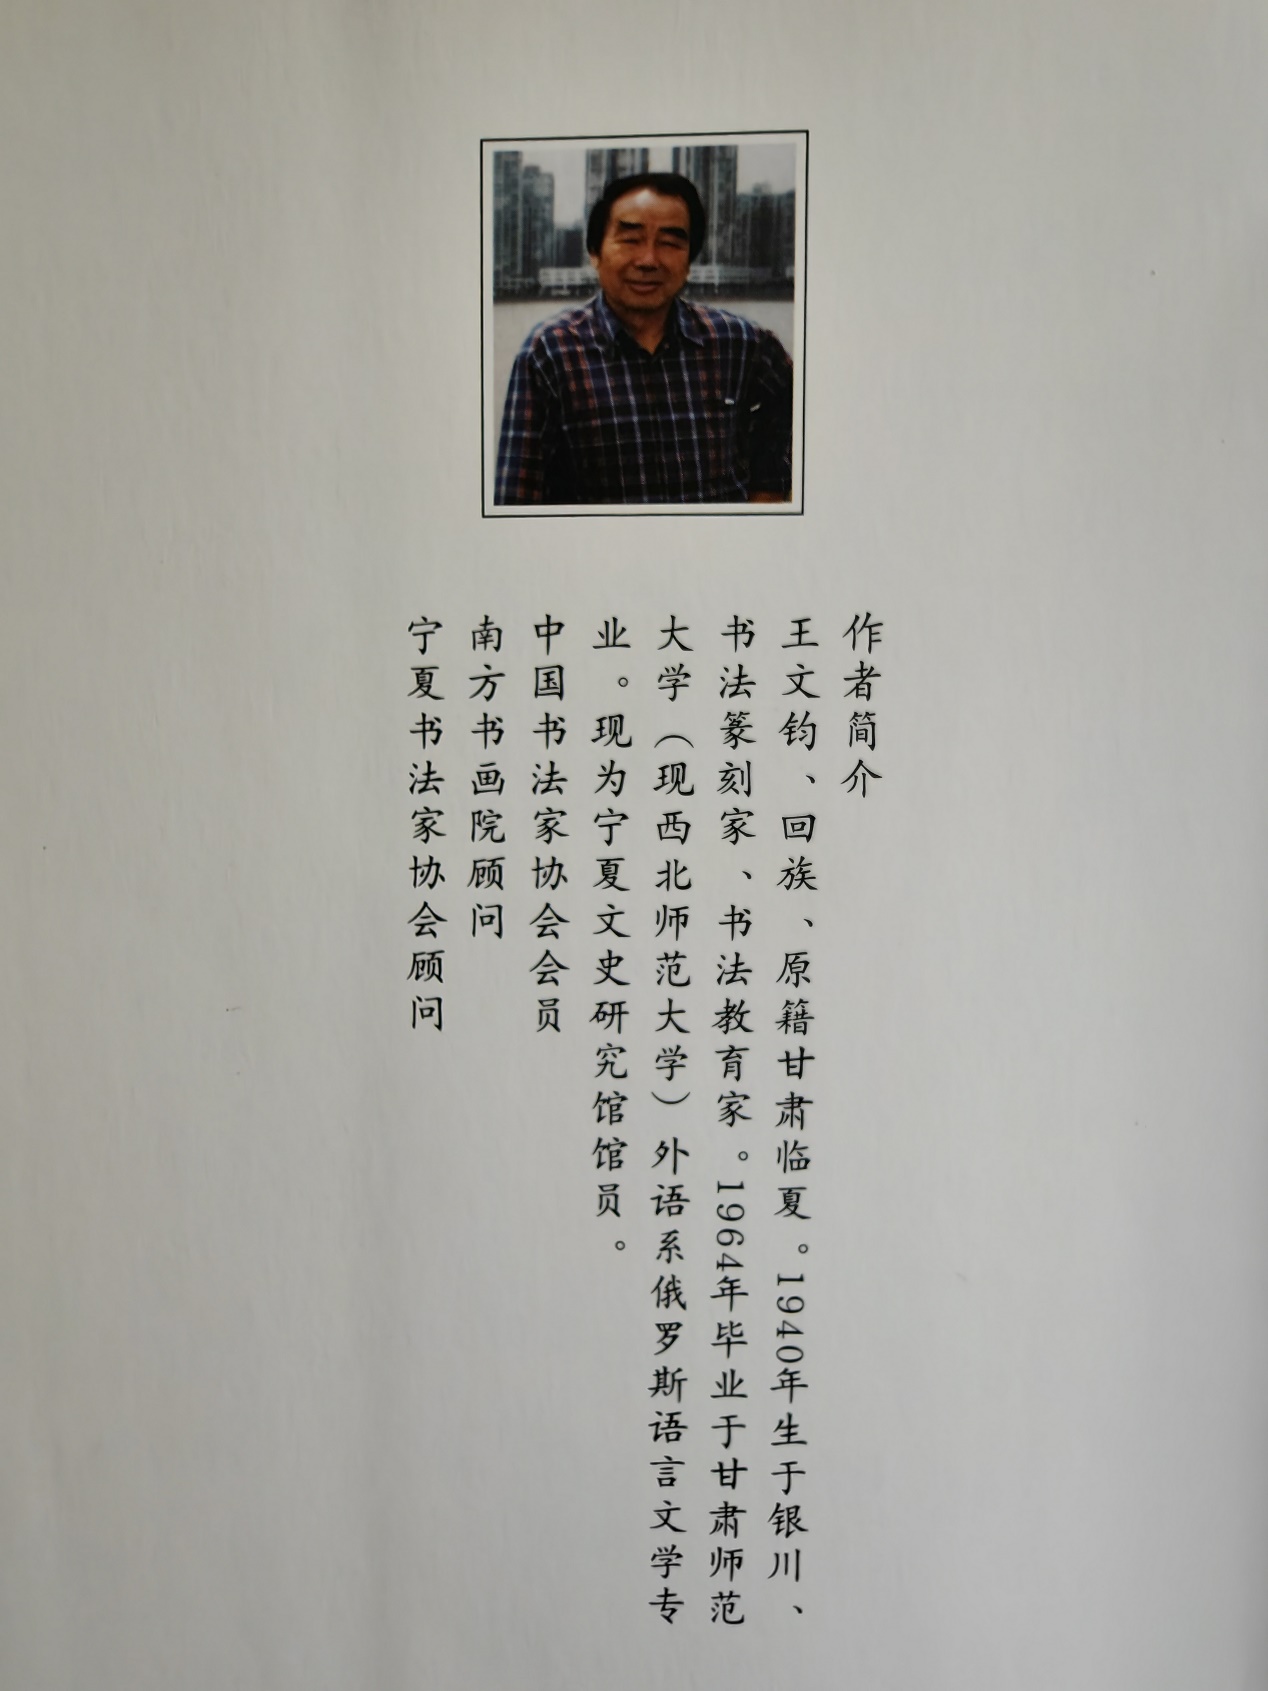 作者简介
王文钧、回族、原籍甘肃临夏。1940年生于银川、
书法篆刻家、书法教育家。1964年毕业于甘肃师范
大学（现西北师范大学）外语系俄罗斯语言文学专
业。现为宁夏文史研究馆馆员。
中国书法家协会会员
南方书画院顾问
宁夏书法家协会顾问